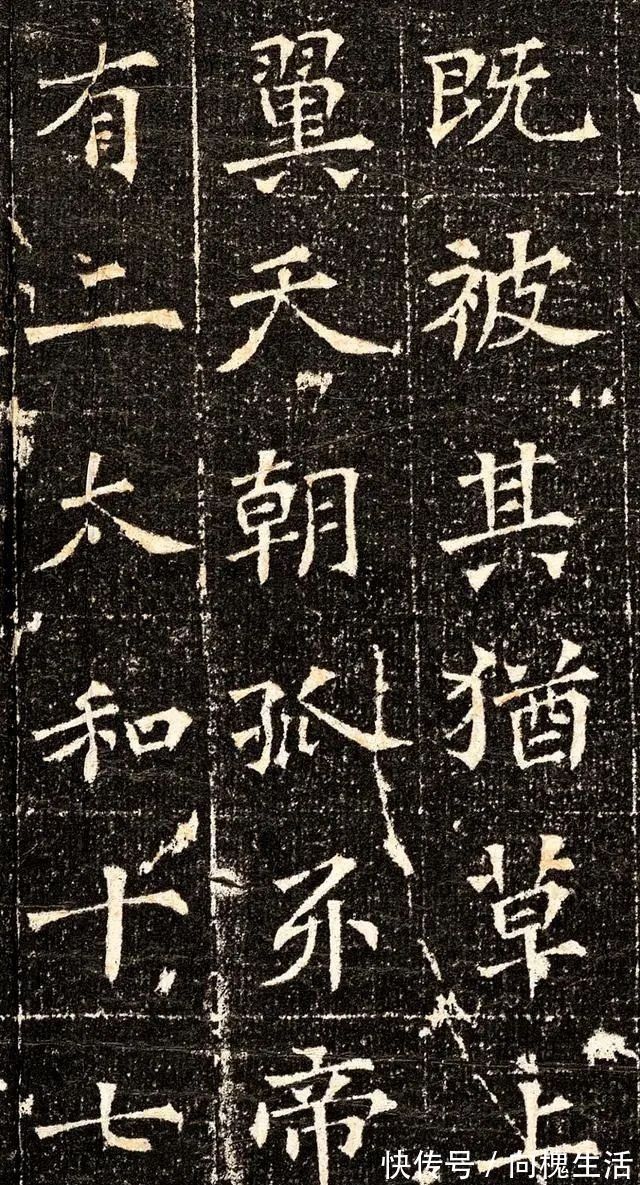 既被其猶草上
翼天朝孤尒帝
有二太和十七
快传号/向槐生活